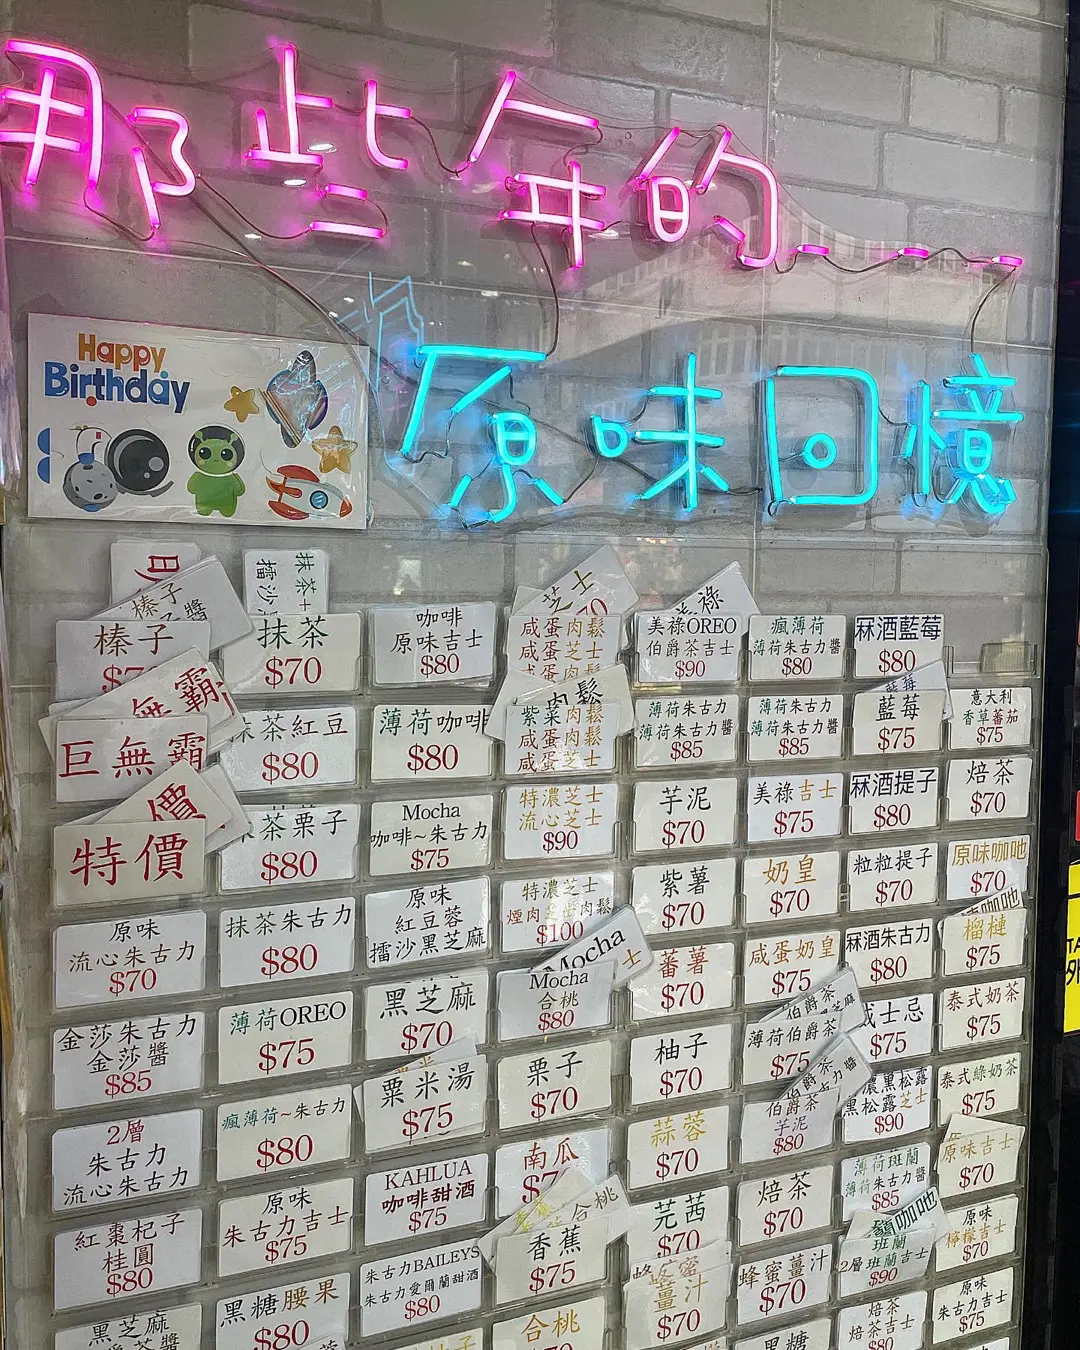 那些年的
原味回憶
Happy
Birthday
榛子
醬
榛子
無霸
巨無霸
價
特價
原味
流心朱古力
$70
金莎朱古力
金莎醬
$85
2層
朱古力
流心朱古力
紅棗杞子
桂圓
$80
黑芝麻
抹茶
擂沙
抹茶
$70
抹茶紅豆
$80
抹茶栗子
$80
抹茶朱古力
$80
薄荷OREO
$75
瘋薄荷~朱古力
$80
原味
朱古力吉士
$75
黑糖腰果
$80
咖啡
原味吉士
$80
薄荷咖啡
$80
Mocha
咖啡~朱古力
$75
原味
紅豆蓉
擂沙黑芝麻
黑芝麻
$70
粟米湯
$75
KAHLUA
咖啡甜酒
$75
朱古力BAILEYS
朱古力愛爾蘭甜酒
$80
芝士
咸蛋肉鬆
咸蛋肉鬆
咸蛋芝士
肉鬆
紫菜肉鬆
咸蛋肉鬆
咸蛋芝士
特濃芝士
流心芝士
$90
特濃芝士
煙肉芝士肉鬆
$100
Mocha
士
Mocha
合桃
$80
栗子
$70
南瓜
合桃
香蕉
$75
合桃
美祿
美祿OREO
伯爵茶吉士
$90
薄荷朱古力
薄荷朱古力醬
$85
芋泥
$70
紫薯
$70
蕃薯
$70
柚子
$70
蒜蓉
$70
芫茜
$70
蜂蜜
薑汁
$70
瘋薄荷
薄荷朱古力醬
$80
薄荷朱古力
薄荷朱古力醬
$85
美祿吉士
$75
奶皇
$70
咸蛋奶皇
$75
伯爵茶
薄荷伯爵茶
$75
伯爵茶
芋泥
$80
焙茶
$70
蜂蜜薑汁
$70
黑糖
冧酒藍莓
$80
藍莓
藍莓
$75
冧酒提子
$80
粒粒提子
$70
冧酒朱古力
$80
威士忌
$75
濃黑松露
黑松露芝士
$90
薄荷班蘭
薄荷朱古力醬
$85
咖吔
班蘭
2層班蘭吉士
$90
焙茶
焙茶吉士
$80
意大利
香草蕃茄
$75
焙茶
$70
原味咖吔
$70
咖吔
榴槤
$75
泰式奶茶
$75
泰式綠奶茶
$75
原味吉士
$70
原味
檸檬吉士
$70
原味
朱古力吉士
$75